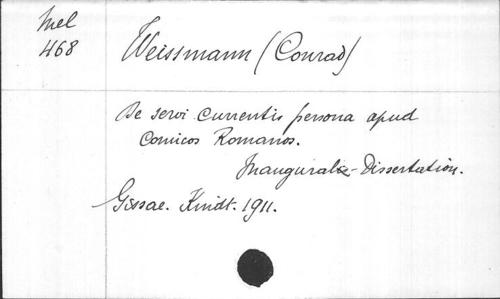 Mel
468
Weissmann (Conrad)
De servi currentis persona apud
Comicos Romanos.
Inaugural-Dissertation.
Gissae. Kindt. 1911.